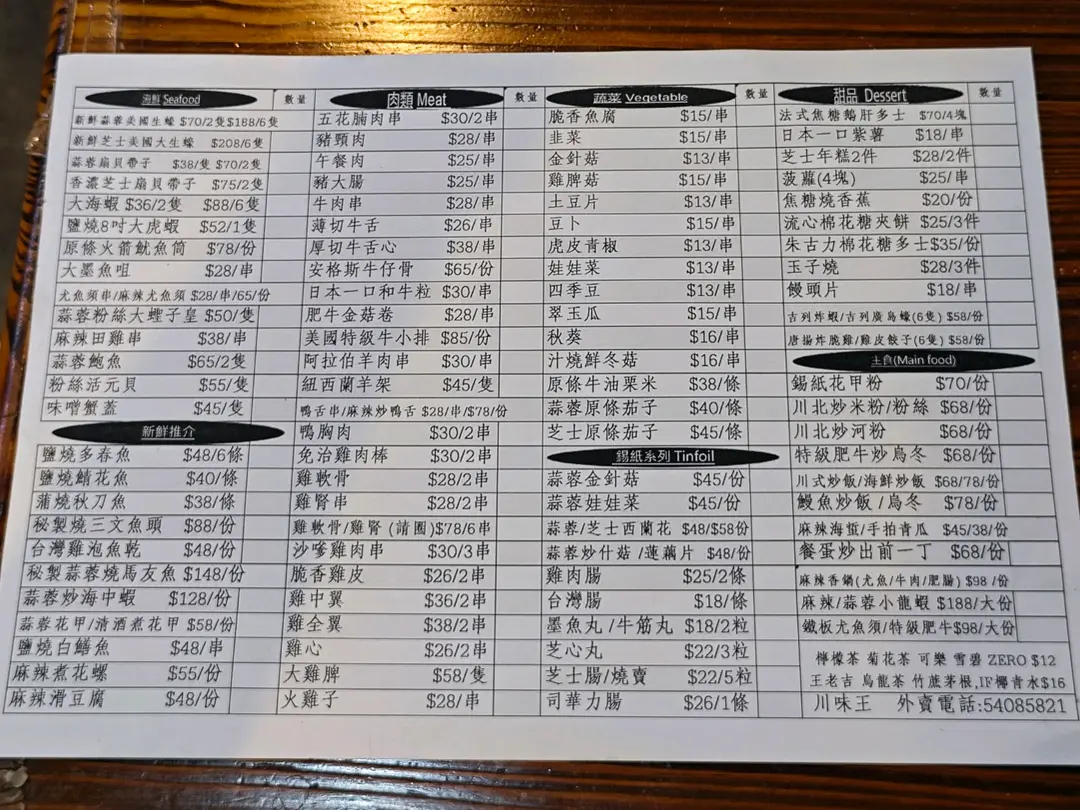 海鮮 Seafood 數量
新鮮蒜蓉美國生蠔 $70/2隻$188/6隻
新鮮芝士美國大生蠔 $208/6隻
蒜蓉扇貝帶子 $38/隻 $70/2隻
香濃芝士扇貝帶子 $75/2隻
大海蝦 $36/2隻 $88/6隻
鹽燒8吋大虎蝦 $52/1隻
原條火箭魷魚筒 $78/份
大墨魚咀 $28/串
尤魚須串/麻辣尤魚須 $28/串/65/份
蒜蓉粉絲大蟶子皇 $50/隻
麻辣田雞串 $38/串
蒜蓉鮑魚 $65/2隻
粉絲活元貝 $55/隻
味噌蟹蓋 $45/隻
新鮮推介
鹽燒多春魚 $48/6條
鹽燒鯖花魚 $40/條
蒲燒秋刀魚 $38/條
秘製燒三文魚頭 $88/份
台灣雞泡魚乾 $48/份
秘製蒜蓉燒馬友魚 $148/份
蒜蓉炒海中蝦 $128/份
蒜蓉花甲/清酒煮花甲 $58/份
鹽燒白鱔魚 $48/串
麻辣煮花螺 $55/份
麻辣滑豆腐 $48/份
肉類 Meat 數量
五花腩肉串 $30/2串
豬頸肉 $28/串
午餐肉 $25/串
豬大腸 $25/串
牛肉串 $28/串
薄切牛舌 $26/串
厚切牛舌心 $38/串
安格斯牛仔骨 $65/份
日本一口和牛粒 $30/串
肥牛金菇卷 $28/串
美國特級牛小排 $85/份
阿拉伯羊肉串 $30/串
紐西蘭羊架 $45/隻
鴨舌串/麻辣炒鴨舌 $28/串/$78/份
鴨胸肉 $30/2串
免治雞肉棒 $30/2串
雞軟骨 $28/2串
雞腎串 $28/2串
雞軟骨/雞腎 (請圈)$78/6串
沙嗲雞肉串 $30/3串
脆香雞皮 $26/2串
雞中翼 $36/2串
雞全翼 $38/2串
雞心 $26/2串
大雞髀 $58/隻
火雞子 $28/串
蔬菜 Vegetable 數量
脆香魚腐 $15/串
韭菜 $15/串
金針菇 $13/串
雞脾菇 $15/串
土豆片 $13/串
豆卜 $15/串
虎皮青椒 $13/串
娃娃菜 $13/串
四季豆 $13/串
翠玉瓜 $15/串
秋葵 $16/串
汁燒鮮冬菇 $16/串
原條牛油粟米 $38/條
蒜蓉原條茄子 $40/條
芝士原條茄子 $45/條
錫紙系列 Tinfoil
蒜蓉金針菇 $45/份
蒜蓉娃娃菜 $45/份
蒜蓉/芝士西蘭花 $48/$58份
蒜蓉炒什菇/蓮藕片 $48/份
雞肉腸 $25/2條
台灣腸 $18/條
墨魚丸/牛筋丸 $18/2粒
芝心丸 $22/3粒
芝士腸/燒賣 $22/5粒
司華力腸 $26/1條
甜品 Dessert 數量
法式焦糖鵝肝多士 $70/4塊
日本一口紫薯 $18/串
芝士年糕2件 $28/2件
菠蘿(4塊) $25/串
焦糖燒香蕉 $20/份
流心棉花糖夾餅 $25/3件
朱古力棉花糖多士$35/份
玉子燒 $28/3件
饅頭片 $18/串
吉列炸蝦/吉列廣島蠔(6隻) $58/份
唐揚炸脆雞/雞皮餃子(6隻) $58/份
主食(Main food)
錫紙花甲粉 $70/份
川北炒米粉/粉絲 $68/份
川北炒河粉 $68/份
特級肥牛炒烏冬 $68/份
川式炒飯/海鮮炒飯 $68/78/份
鰻魚炒飯/烏冬 $78/份
麻辣海蜇/手拍青瓜 $45/38/份
餐蛋炒出前一丁 $68/份
麻辣香鍋(尤魚/牛肉/肥腸) $98 /份
麻辣/蒜蓉小龍蝦 $188/大份
鐵板尤魚須/特級肥牛$98/大份
檸檬茶 菊花茶 可樂 雪碧 ZERO $12
王老吉 烏龍茶 竹蔗茅根,IF椰青水$16
川味王 外賣電話:54085821